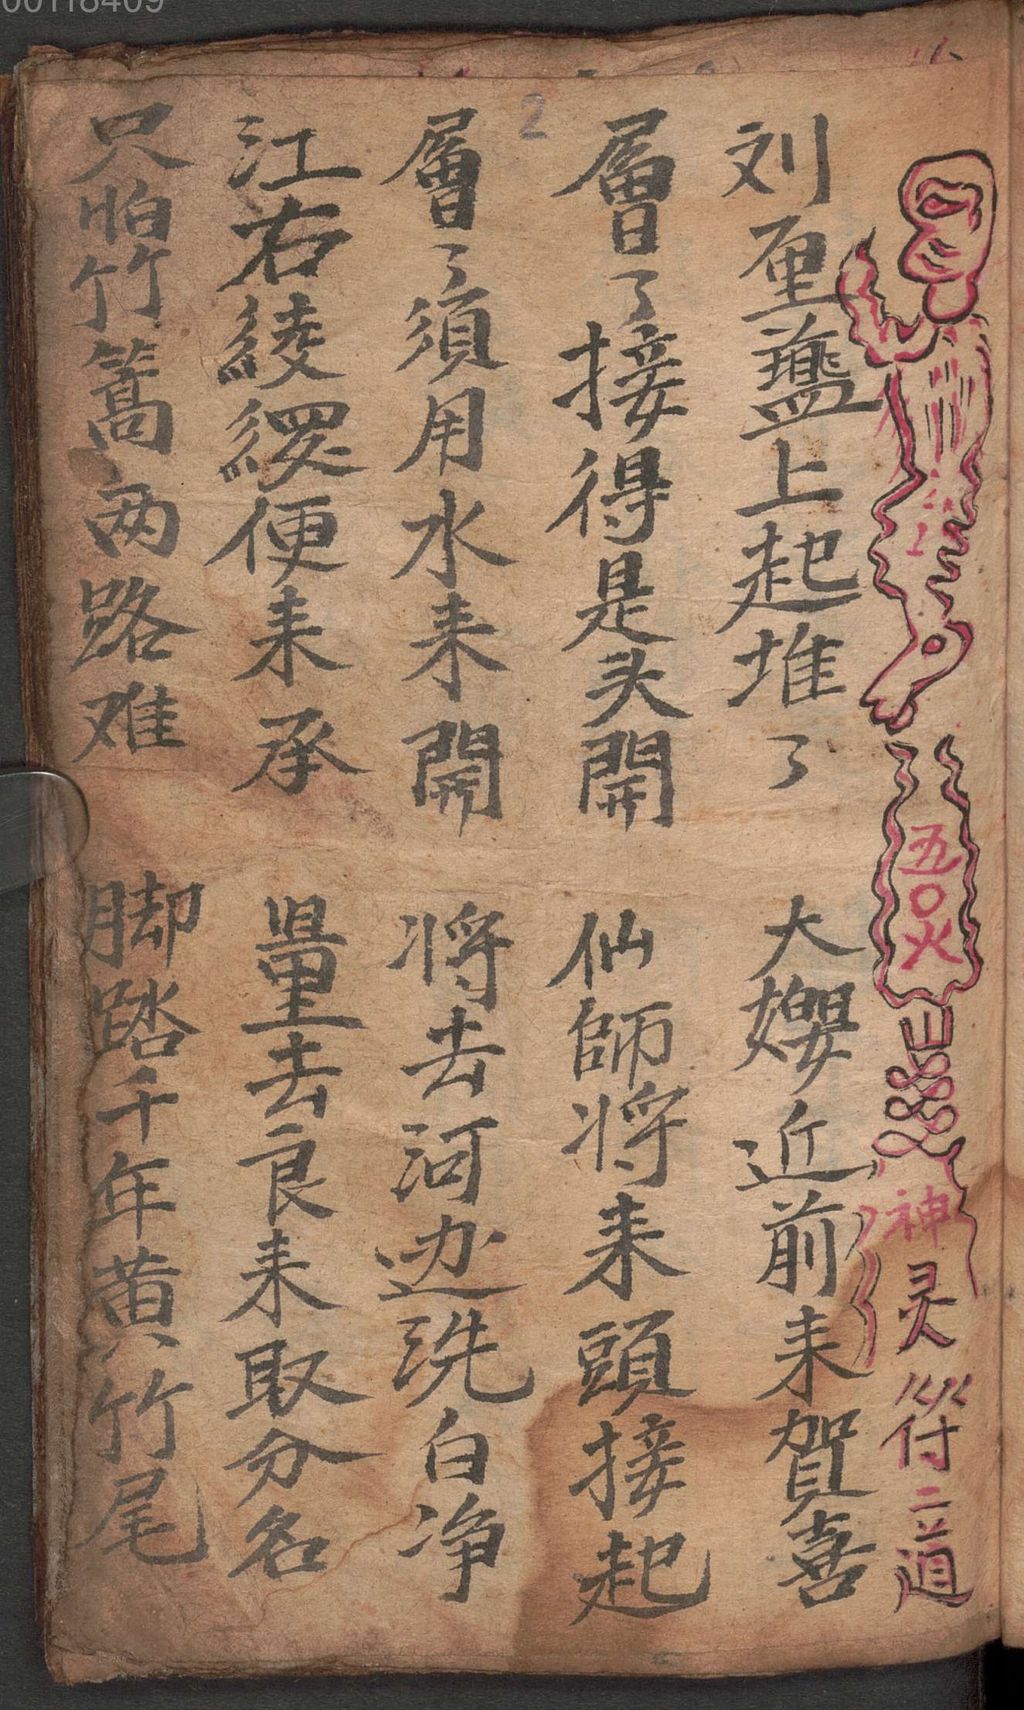 00118409
2
五〇火
神灵符二道
刘 盤上起堆了 大嫂近前来賀喜
層了接得是头開 仙師将来頭接起
層了須用水来開 将去河边洗白净
江右綾 便来承 量去良来取分名
只怕竹篙两路难 脚踏千年黄竹尾